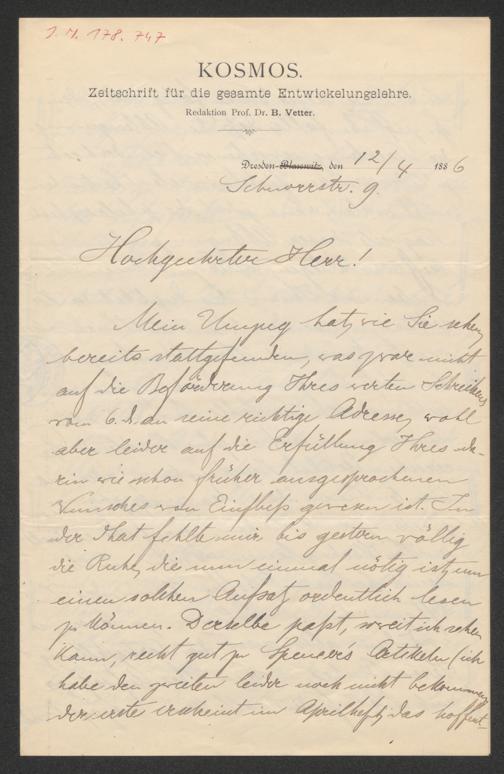 J. N. 178.747
KOSMOS.
Zeitschrift für die gesamte Entwickelungslehre.
Redaktion Prof. Dr. B. Vetter.
Dresden-Blasewitz, den 12/4 1886
Schnorrstr. 9.
Hochgeehrter Herr!
Mein Umzug hat, wie Sie sehen,
bereits stattgefunden, was zwar nicht
auf die Beförderung Ihres werten Schreibens
vom 6. d. an seine richtige Adresse, wohl
aber leider auf die Erfüllung Ihres da-
rin wie schon früher ausgesprochenen
Wunsches von Einfluß gewesen ist. In
der That fehlte mir bis gestern völlig
die Ruhe, die nun einmal nötig ist, um
einen solchen Aufsatz ordentlich lesen
zu können. Derselbe paßt, soweit ich sehen
kann, recht gut zu Spencer's Artikeln (ich
habe den zweiten leider noch nicht bekommen,
der erste erscheint im Aprilheft, das hoffent-